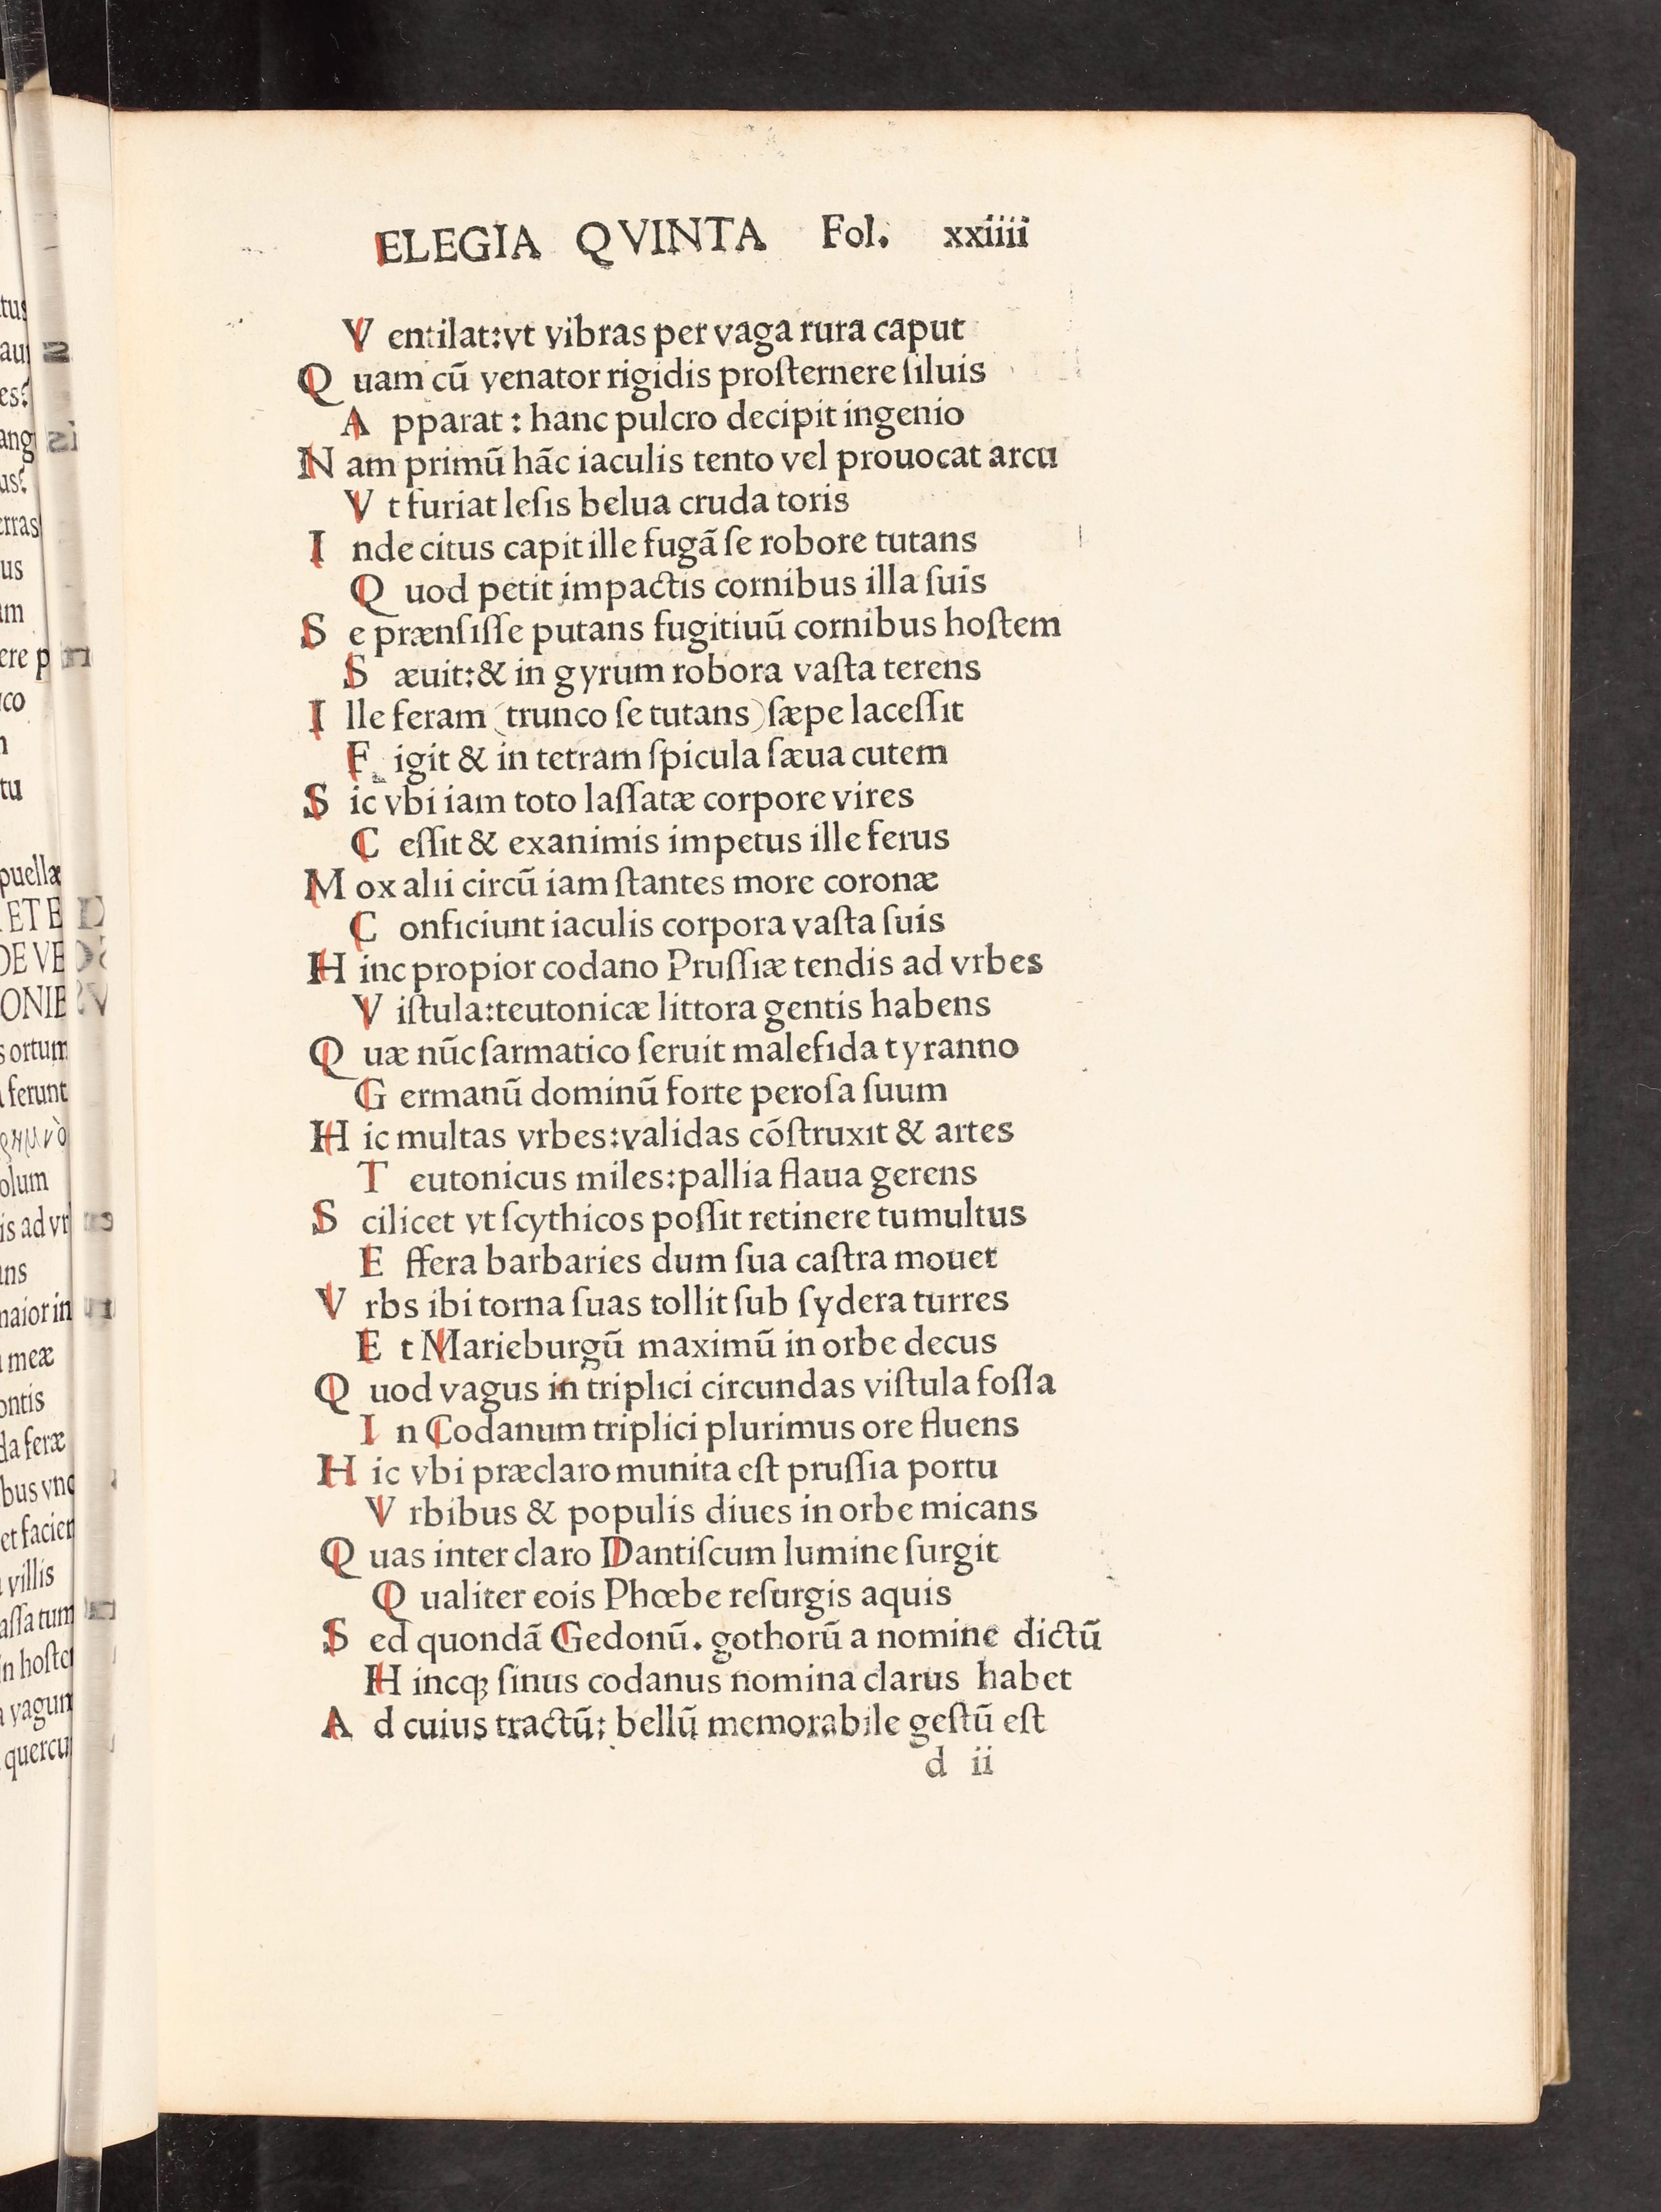 ELEGIA QVINTA Fol. xxiiii
V entilat:vt vibras per vaga rura caput
Q uam cū venator rigidis proſternere ſiluis
A pparat : hanc pulcro decipit ingenio
N am primū hāc iaculis tento vel prouocat arcu
V t furiat leſis belua cruda toris
I nde citus capit ille fugā ſe robore tutans
Q uod petit impactis cornibus illa ſuis
S e prænſiſſe putans fugitiuū cornibus hoſtem
S æuit:& in gyrum robora vaſta terens
I lle feram (trunco ſe tutans) ſæpe laceſſit
F igit & in tetram ſpicula ſæua cutem
S ic vbi iam toto laſſatæ corpore vires
C eſſit & exanimis impetus ille ferus
M ox alii circū iam ſtantes more coronæ
C onficiunt iaculis corpora vaſta ſuis
H inc propior codano Pruſſiæ tendis ad vrbes
V iſtula:teutonicæ littora gentis habens
Q uæ nūc ſarmatico ſeruit malefida tyranno
G ermanū dominū forte peroſa ſuum
H ic multas vrbes:validas cōſtruxit & artes
T eutonicus miles:pallia flaua gerens
S cilicet vt ſcythicos poſſit retinere tumultus
E ffera barbaries dum ſua caſtra mouet
V rbs ibi torna ſuas tollit ſub ſydera turres
E t Marieburgū maximū in orbe decus
Q uod vagus in triplici circundas viſtula foſſa
I n Codanum triplici plurimus ore fluens
H ic vbi præclaro munita eſt pruſſia portu
V rbibus & populis diues in orbe micans
Q uas inter claro Dantiſcum lumine ſurgit
Q ualiter eois Phœbe reſurgis aquis
S ed quondā Gedonū. gothorū a nomine dictū
H incꝗ ſinus codanus nomina clarus habet
A d cuius tractū: bellū memorabile geſtū eſt
d ii